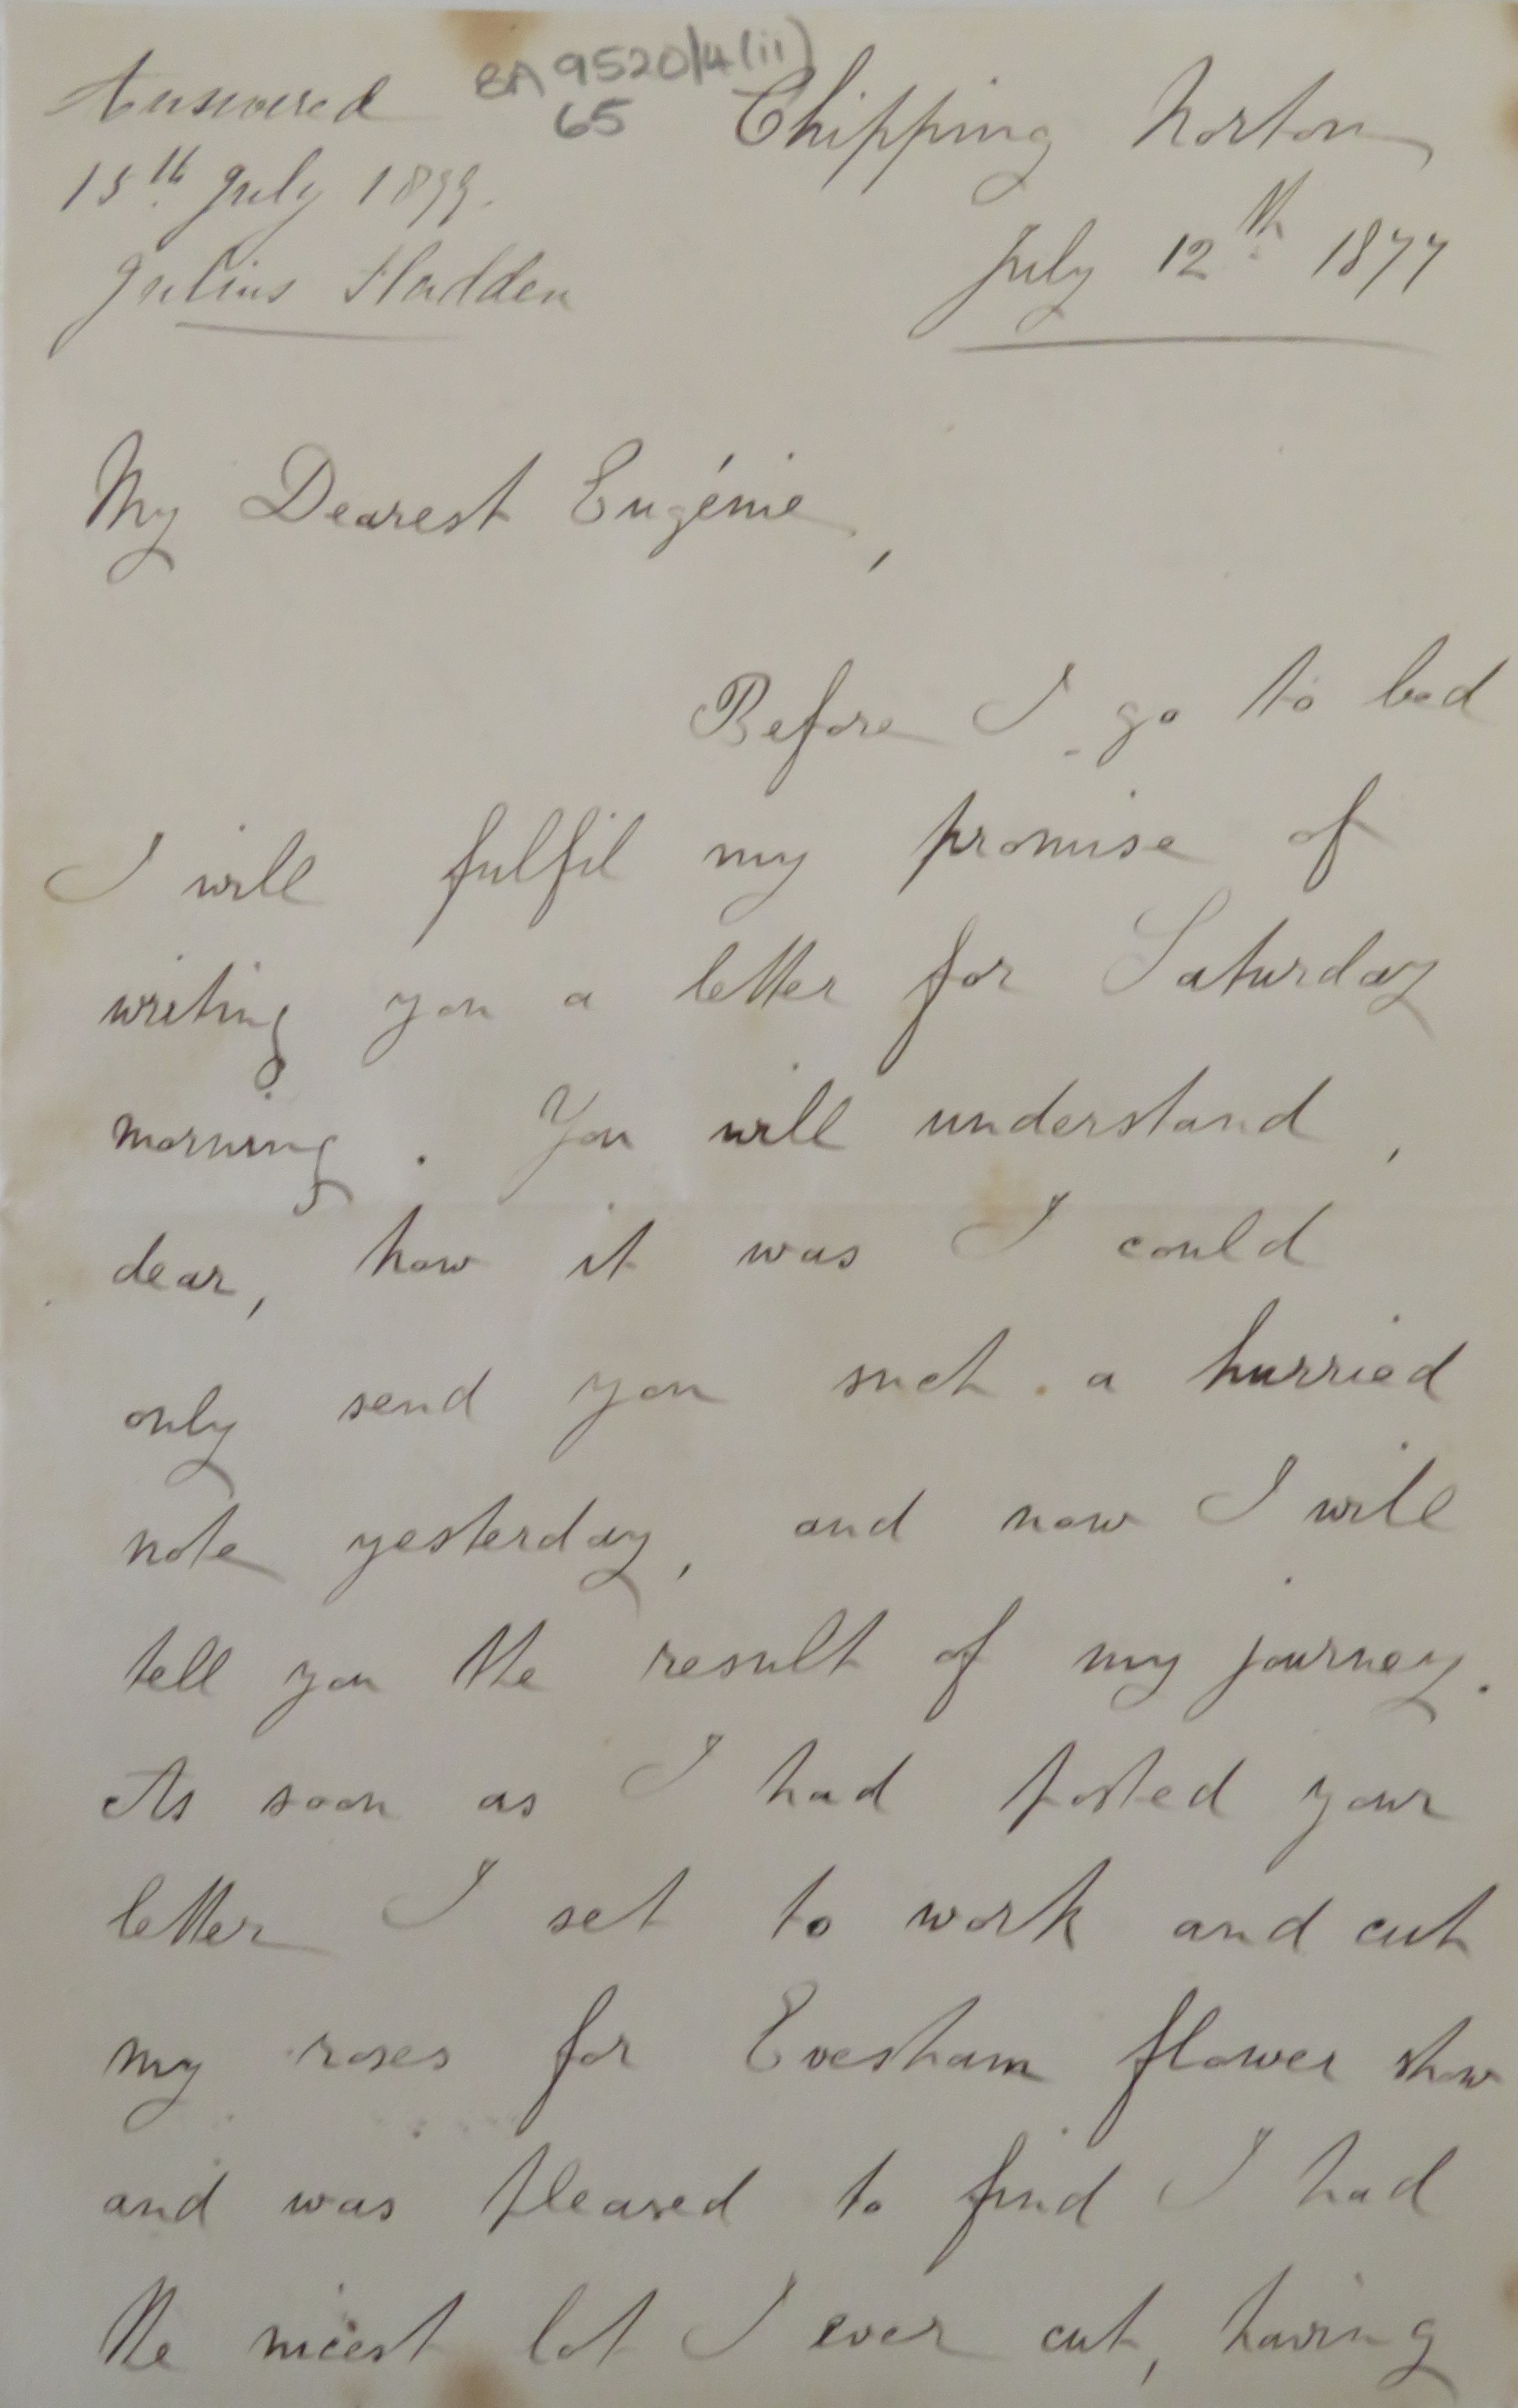 BA 9520/4(ii)
65
Answered
15th July 1877.
Julius Sladden
Chipping Norton
July 12th 1877
My Dearest Eugénie,
Before I go to bed
I will fulfil my promise of
writing you a letter for Saturday
morning. You will understand,
dear, how it was I could
only send you such a hurried
note yesterday, and now I will
tell you the result of my journey.
As soon as I had posted your
letter I set to work and cut
my roses for Evesham flower show
and was pleased to find I had
the nicest lot I ever cut, having